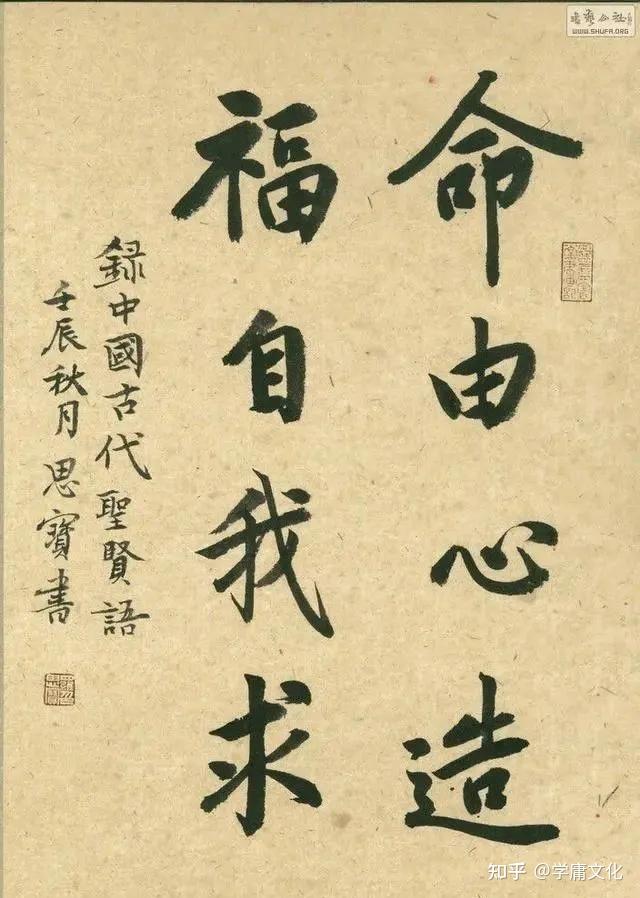 命由心造
福自我求
録中國古代聖賢語
壬辰秋月思寶書
書藝公社
WWW.SHUFA.ORG
知乎 @学庸文化